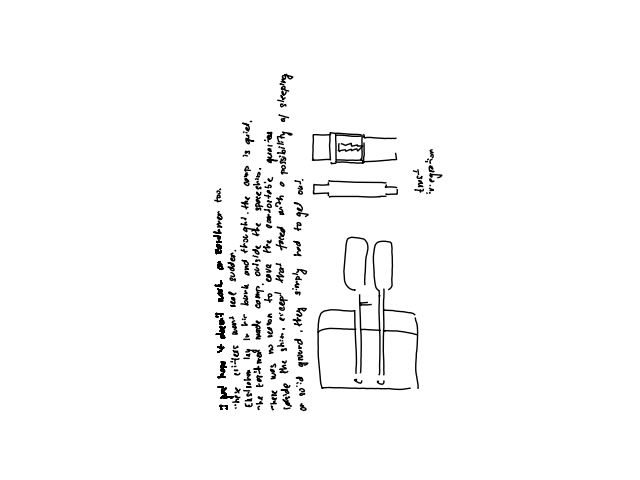 I just hope it doesn't work on earthmen too.
These critters went real sudden.
Ekstrohm lay in his bunk and thought, the camp is quiet.
The Earthmen made camp outside the spaceship.
There was no reason to leave the comfortable quarters
inside the ship, except that faced with a possibility of sleeping
on solid ground, they simply had to get out.
irregation